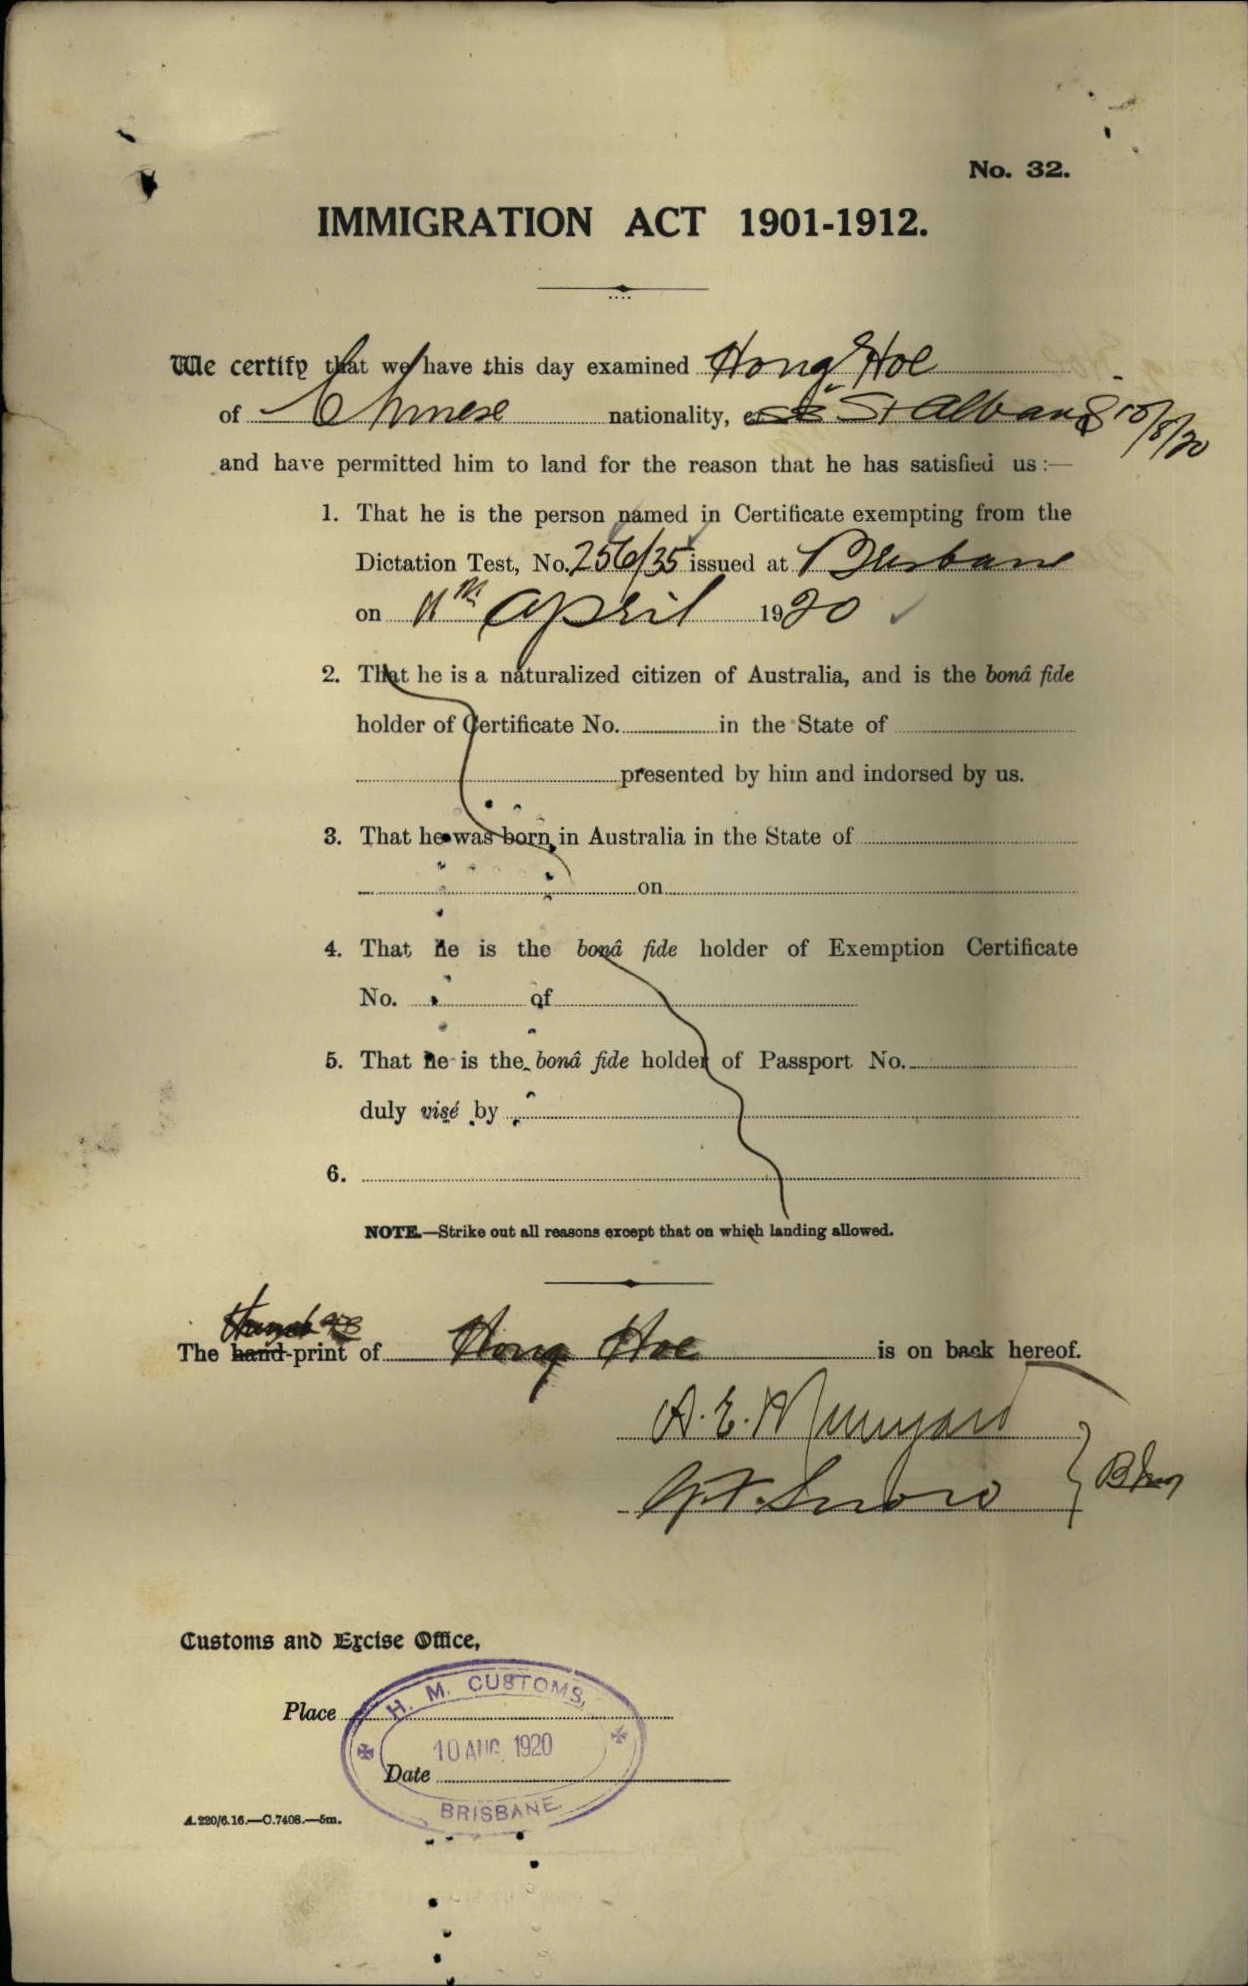 No. 32.
IMMIGRATION ACT 1901-1912.
We certify that we have this day examined Hong Hoe
of Chinese nationality, ex SS St Albans 10/8/20
and have permitted him to land for the reason that he has satisfied us :—
1. That he is the person named in Certificate exempting from the
Dictation Test, No. 256/35 issued at Brisbane
on 11th April 1920
2. That he is a naturalized citizen of Australia, and is the bonâ fide
holder of Certificate No. in the State of
presented by him and indorsed by us.
3. That he was born in Australia in the State of
on
4. That he is the bonâ fide holder of Exemption Certificate
No. of
5. That he is the bonâ fide holder of Passport No.
duly visé by
6.
NOTE.—Strike out all reasons except that on which landing allowed.
The hand-print of Hong Hoe is on back hereof.
A. E.
Customs and Excise Office,
Place
H. M. CUSTOMS,
10 AUG 1920
Date
BRISBANE
A.220/6.16.—C.7408.—5m.